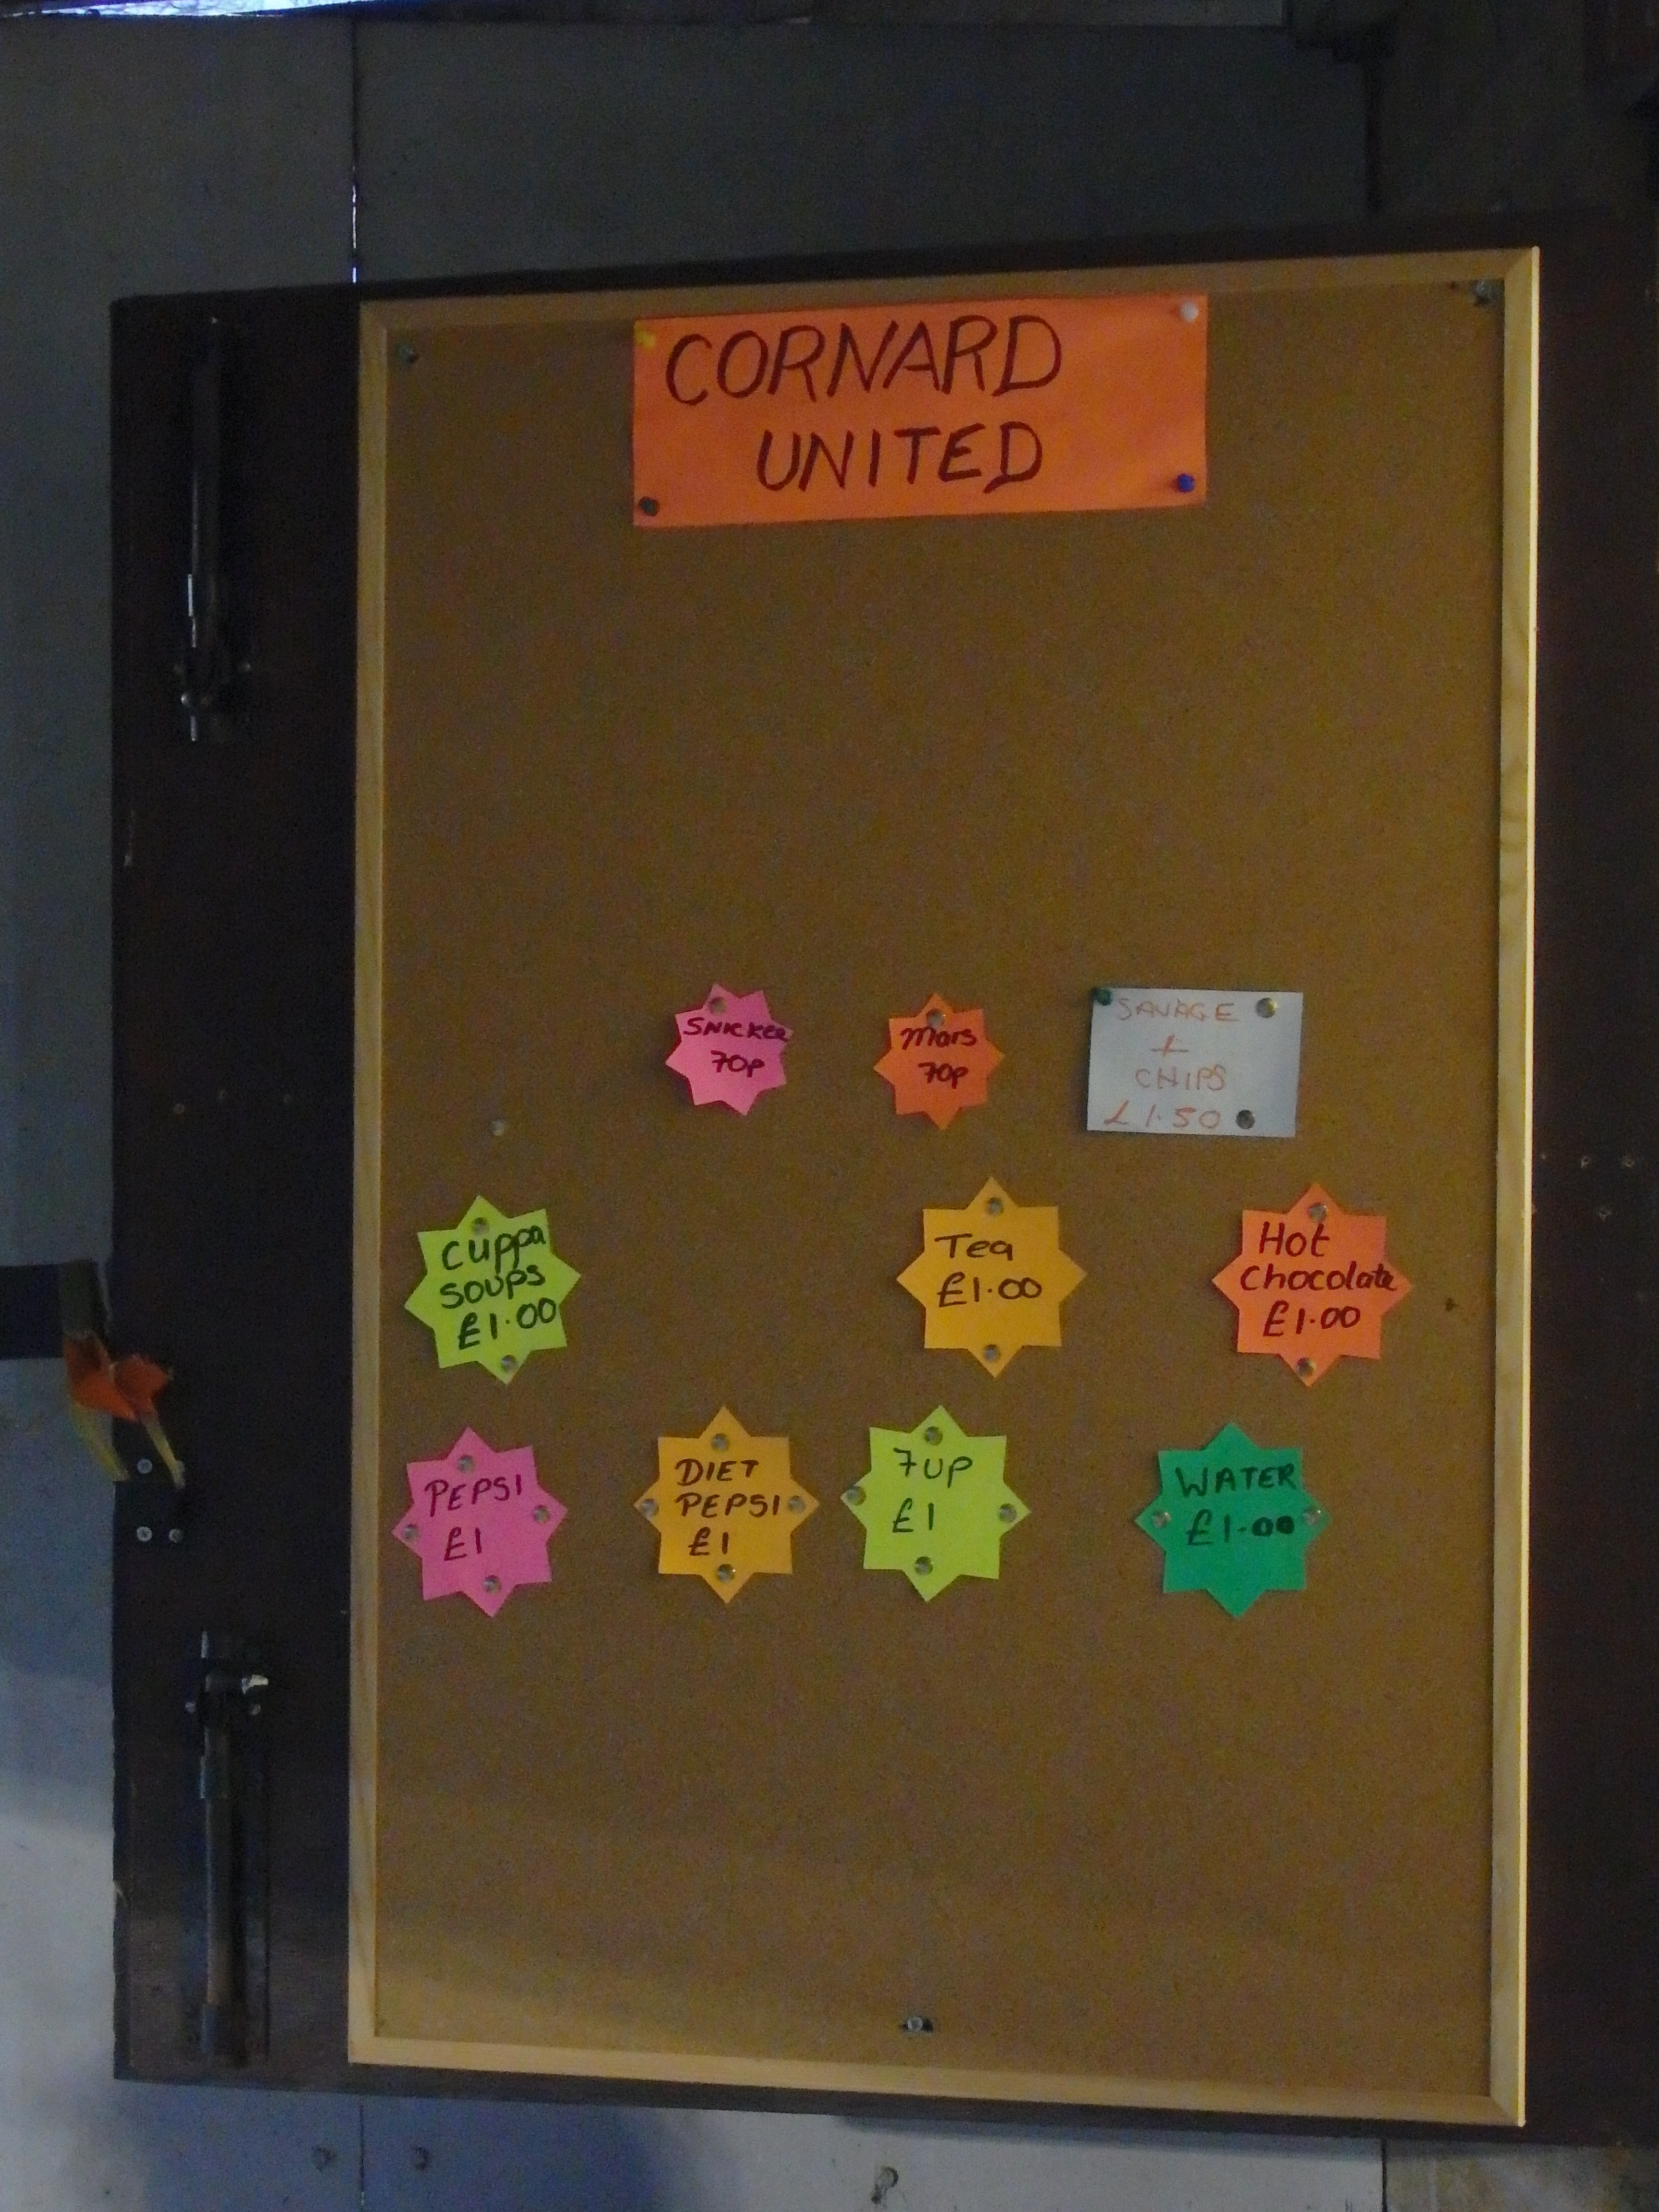 CORNARD
UNITED
SNICKER
70p
Mars
70p
SAVAGE
+
CHIPS
£1.50
Cuppa
SOUPS
£1.00
Tea
£1.00
Hot
Chocolate
£1.00
PEPSI
£1
DIET
PEPSI
£1
7UP
£1
WATER
£1.00